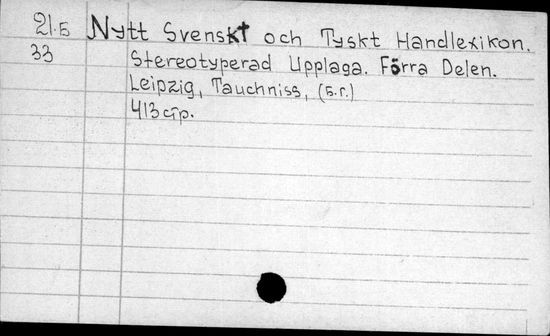 21.Б Nytt Svenskt och Tyskt Handlexikon.
33 Stereotyperad Upplaga. Förra Delen.
Leipzig, Tauchniss, (Б.г.)
413 стр.